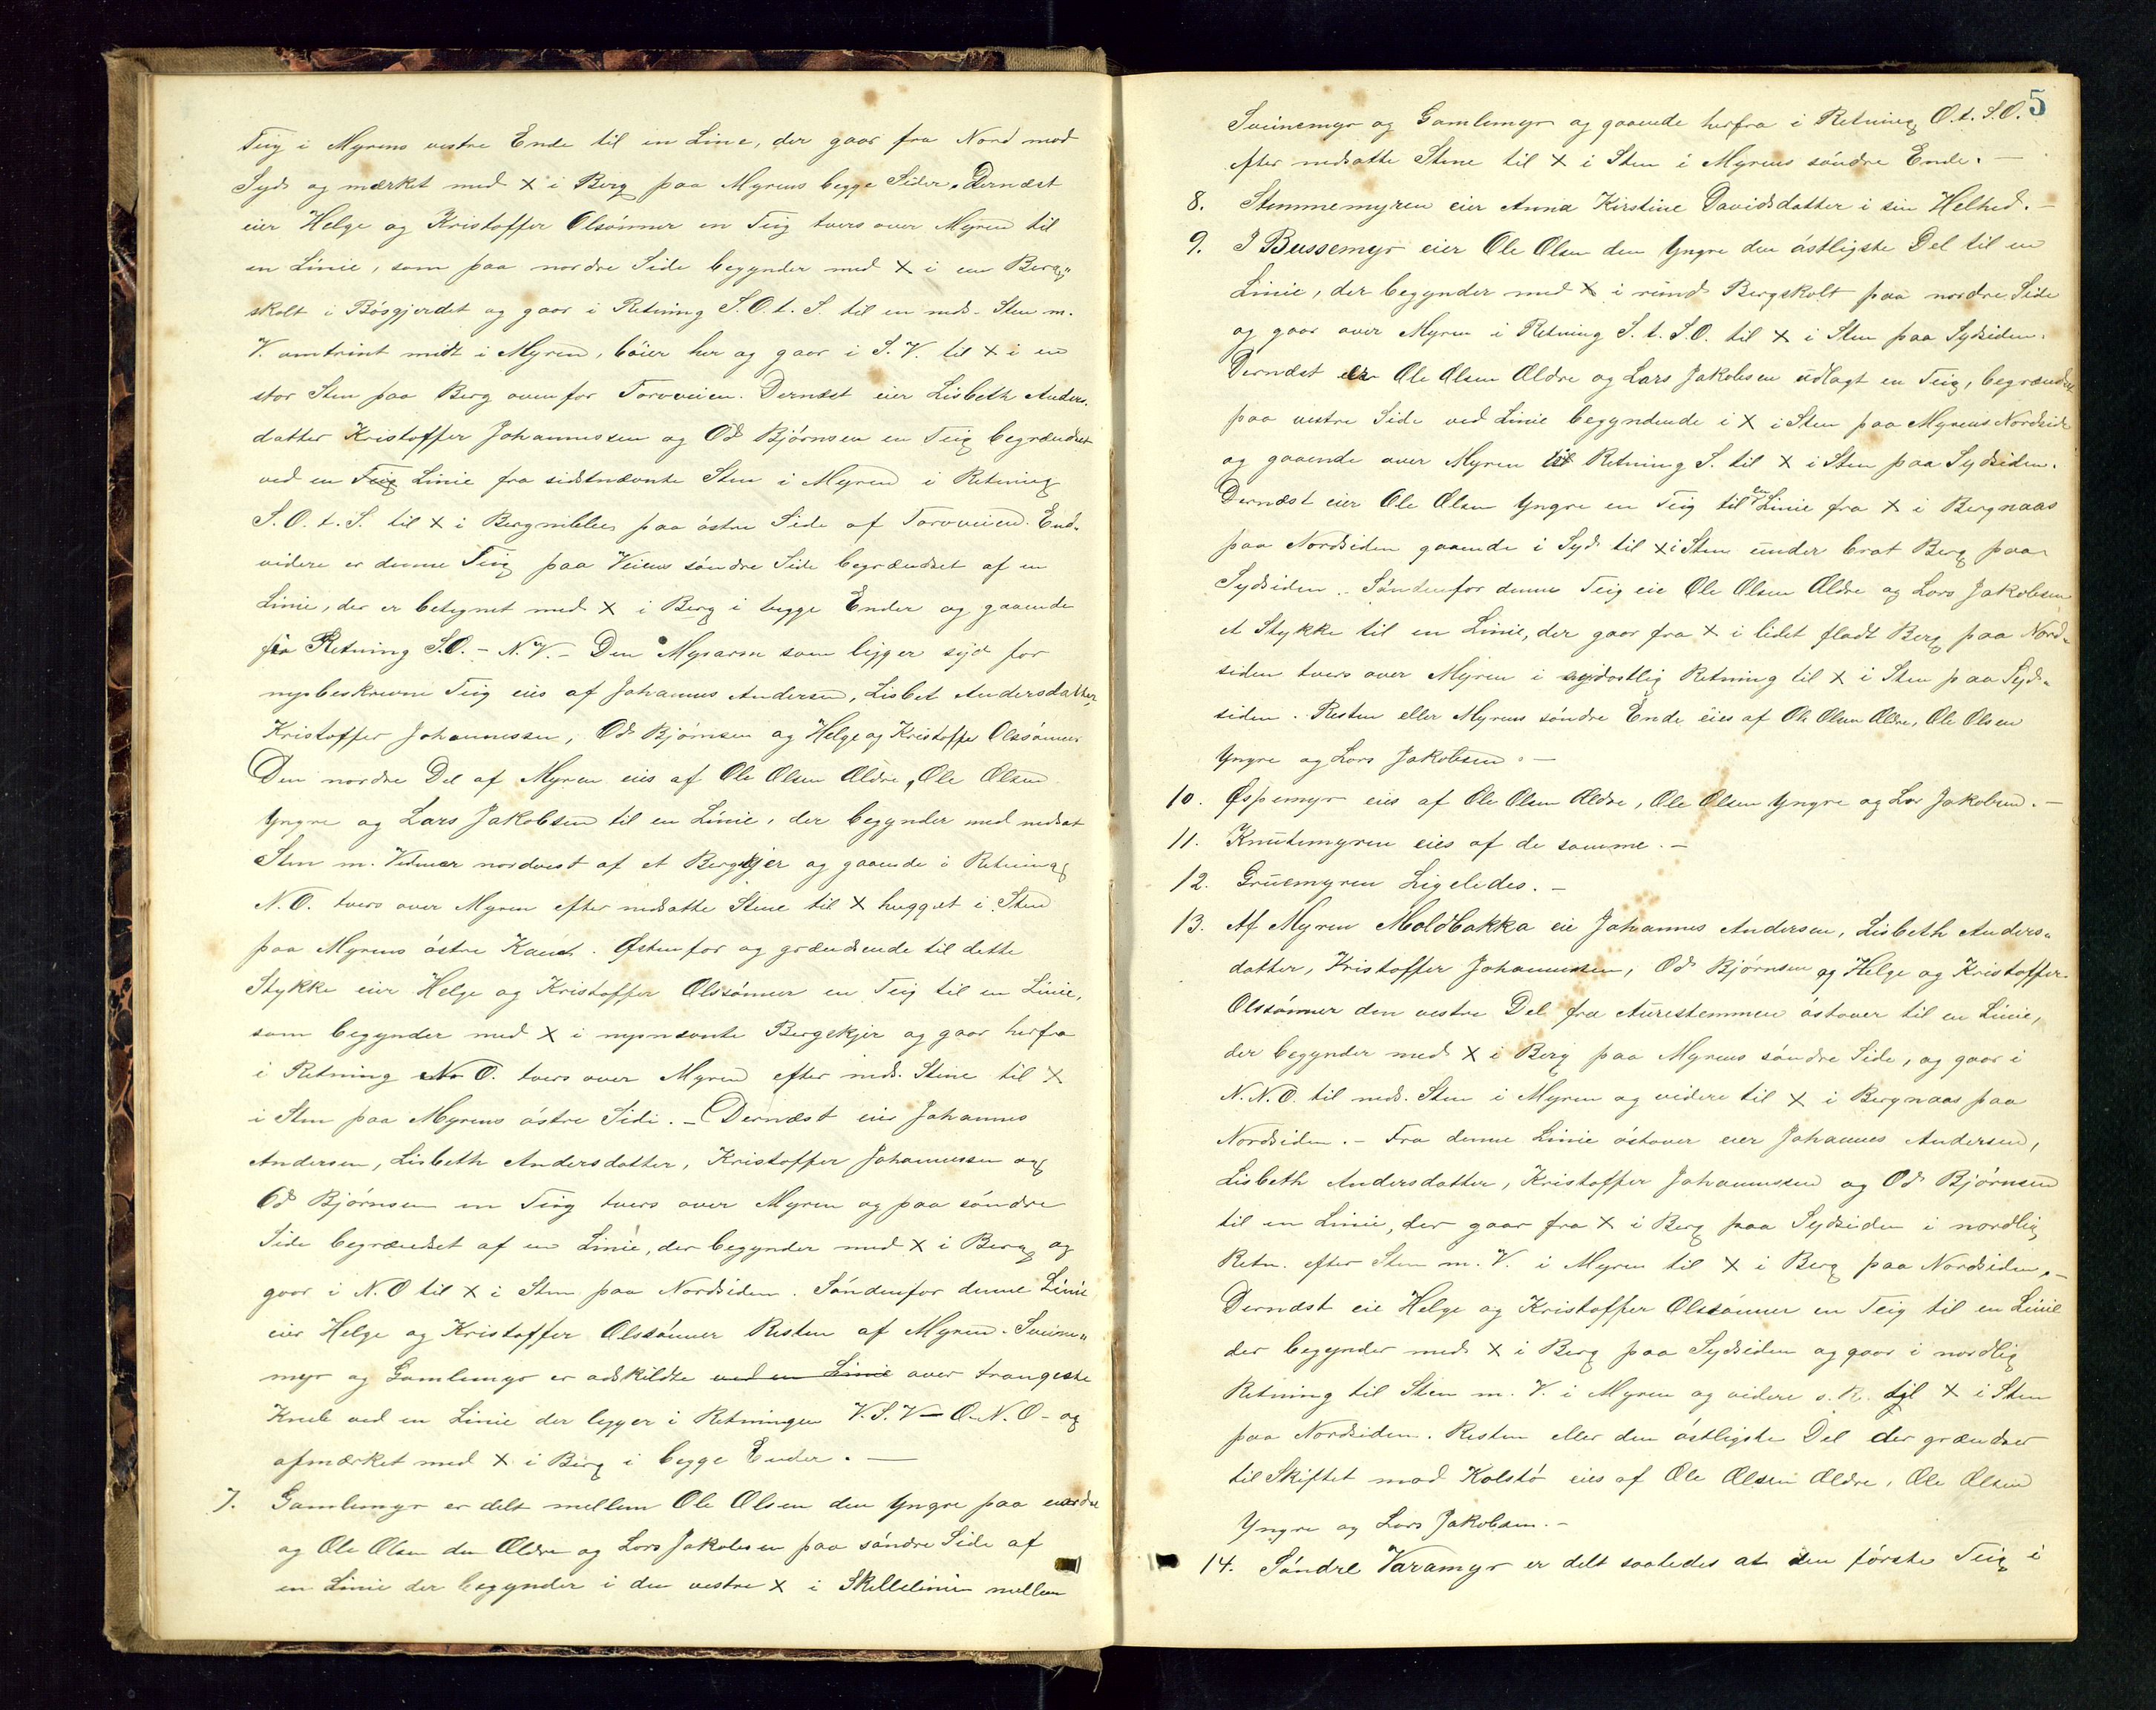 Teig i Myrens vestre Ende til en Linie, der gaar fra Nord mod
Syd og mærket med X i Berg paa Myrens begge Sider. Dernæst
eier Helge og Kristoffer Olsönner en Teig tvers over Myren til
en Linie, som paa nordre Side begynder med X i en Berg„
skolt i Bösgjerdet og gaar i Retning S.O.t.S. til en neds. Sten m.
V. omtrint midt i Myren, böier her og gaar i S.V. til X i en
stor Sten paa Berg ovenfor Torvveien. Dernæst eier Lisbeth Anders„
datter Kristoffer Johannessen og Od Bjørnsen en Teig begrændset
ved en Teig Linie fra sidstnævnte Sten i Myren i Retning
S.O.t.S. til X i Bergnibben paa östre Side af Torvveien. End„
videre er denne Teig paa Veiens söndre Side begrændset af en
Linie, der er betegnet med X i Berg i begge Ender og gaaende
i Retning S.O. - N.V. - Den Myrarm som ligger syd for
nysbeskrevne Teig eies af Johannes Andersen, Lisbet Andersdatter,
Kristoffer Johannessen, Od Bjørnsen og Helge og Kristoffer Olssönner
Den nordre Del af Myren eies af Ole Olsen Ældre, Ole Olsen
Yngre og Lars Jakobsen til en Linie, der begynder med nedsat
Sten m. Vidner nordvest af et Bergskjer og gaaende i Retning
N.O. tvers over Myren efter nedsatte Stene til X hugget i Sten
paa Myrens östre Kant. Østenfor og grændsende til dette
Stykke eier Helge og Kristoffer Olssönner en Teig til en Linie,
som begynder med X i nysnævnte Bergskjer og gaar herfra
i Retning N.O. tvers over Myren efter neds. Stene til X
i Sten paa Myrens östre Side. - Dernæst eier Johannes
Andersen, Lisbeth Andersdatter, Kristoffer Johannessen og
Od Bjørnsen en Teig tvers over Myren og paa söndre
Side begrændset af en Linie, der begynder med X i Berg og
gaar i N.O til X i Sten paa Nordsiden. Söndenfor denne Linie
eier Helge og Kristoffer Olssönner Resten af Myren. Sveine„
myr og Gamlemyr er adskildte ved en Linie over trangeste
Kneb ved en Linie der ligger i Retningen V.S.V - O.N.O - og
afmærket med X i Berg i begge Ender. —
7. Gamlemyr er delt mellem Ole Olsen den Yngre paa nordre
og Ole Olsen den Ældre og Lars Jakobsen paa söndre Side af
en Linie der begynder i den vestre X i Skillelinien mellem
5
Sveinemyr og Gamlemyr og gaaende herfra i Retning O.t.S.O.
efter nedsatte Stene til X i Sten i Myrens söndre Ende. —
8. Stemmemyren eier Anna Kirstine Davidsdatter i sin Helhed. -
9. I Bussemyr eier Ole Olsen den Yngre den östligste Del til en
Linie, der begynder med X i rund Bergskolt paa nordre Side
og gaar over Myren i Retning S.t.S.O. til X i Sten paa Sydsiden.
Dernæst er Ole Olsen Ældre og Lars Jakobsen udlagt en Teig, begrændset
paa vestre Side ved Linie begyndende i X i Sten paa Myrens Nordside
og gaaende over Myren i Retning S. til X i Sten paa Sydsiden.
Dernæst eier Ole Olsen Yngre en Teig til en Linie fra X i Bergnaas
paa Nordsiden gaaende i Syd til X i Sten under brat Berg paa
Sydsiden. Söndenfor denne Teig eie Ole Olsen Ældre og Lars Jakobsen
et Stykke til en Linie, der gaar fra X i lidet fladt Berg paa Nord„
siden tvers over Myren i sydostlig Retning til X i Sten paa Syd„
siden. Resten eller Myrens söndre Ende eies af Ole Olsen Ældre, Ole Olsen
Yngre og Lars Jakobsen. —
10. Øspemyr eies af Ole Olsen Ældre, Ole Olsen Yngre og Lars Jakobsen. -
11. Knutemyren eies af de samme. -
12. Gruemyren Ligeledes. -
13. Af Myren Moldbakka eie Johannes Andersen, Lisbeth Anders„
datter, Kristoffer Johannessen, Od Bjørnsen og Helge og Kristoffer
Olssönner den vestre Del fra Aurestemmen östover til en Linie,
der begynder med X i Berg paa Myrens söndre Side, og gaar i
N.N.O. til neds. Sten i Myren og videre til X i Bergnaas paa
Nordsiden. - Fra denne Linie östover eier Johannes Andersen,
Lisbeth Andersdatter, Kristoffer Johannessen og Od Bjørnsen
til en Linie, der gaar fra X i Berg paa Sydsiden i nordlig
Retn. efter Sten m. V. i Myren til X i Berg paa Nordsiden. -
Dernæst eie Helge og Kristoffer Olssönner en Teig til en Linie
der begynder med X i Berg paa Sydsiden og gaar i nordlig
Retning til Sten m. V. i Myren og videre s. R. til X i Sten
paa Nordsiden. Resten eller den östligste Del der grændser
til Skiftet mod Kolstö eies af Ole Olsen Ældre, Ole Olsen
Yngre og Lars Jakobsen. -
14. Söndre Varamyr er delt saaledes at den förste Teig i